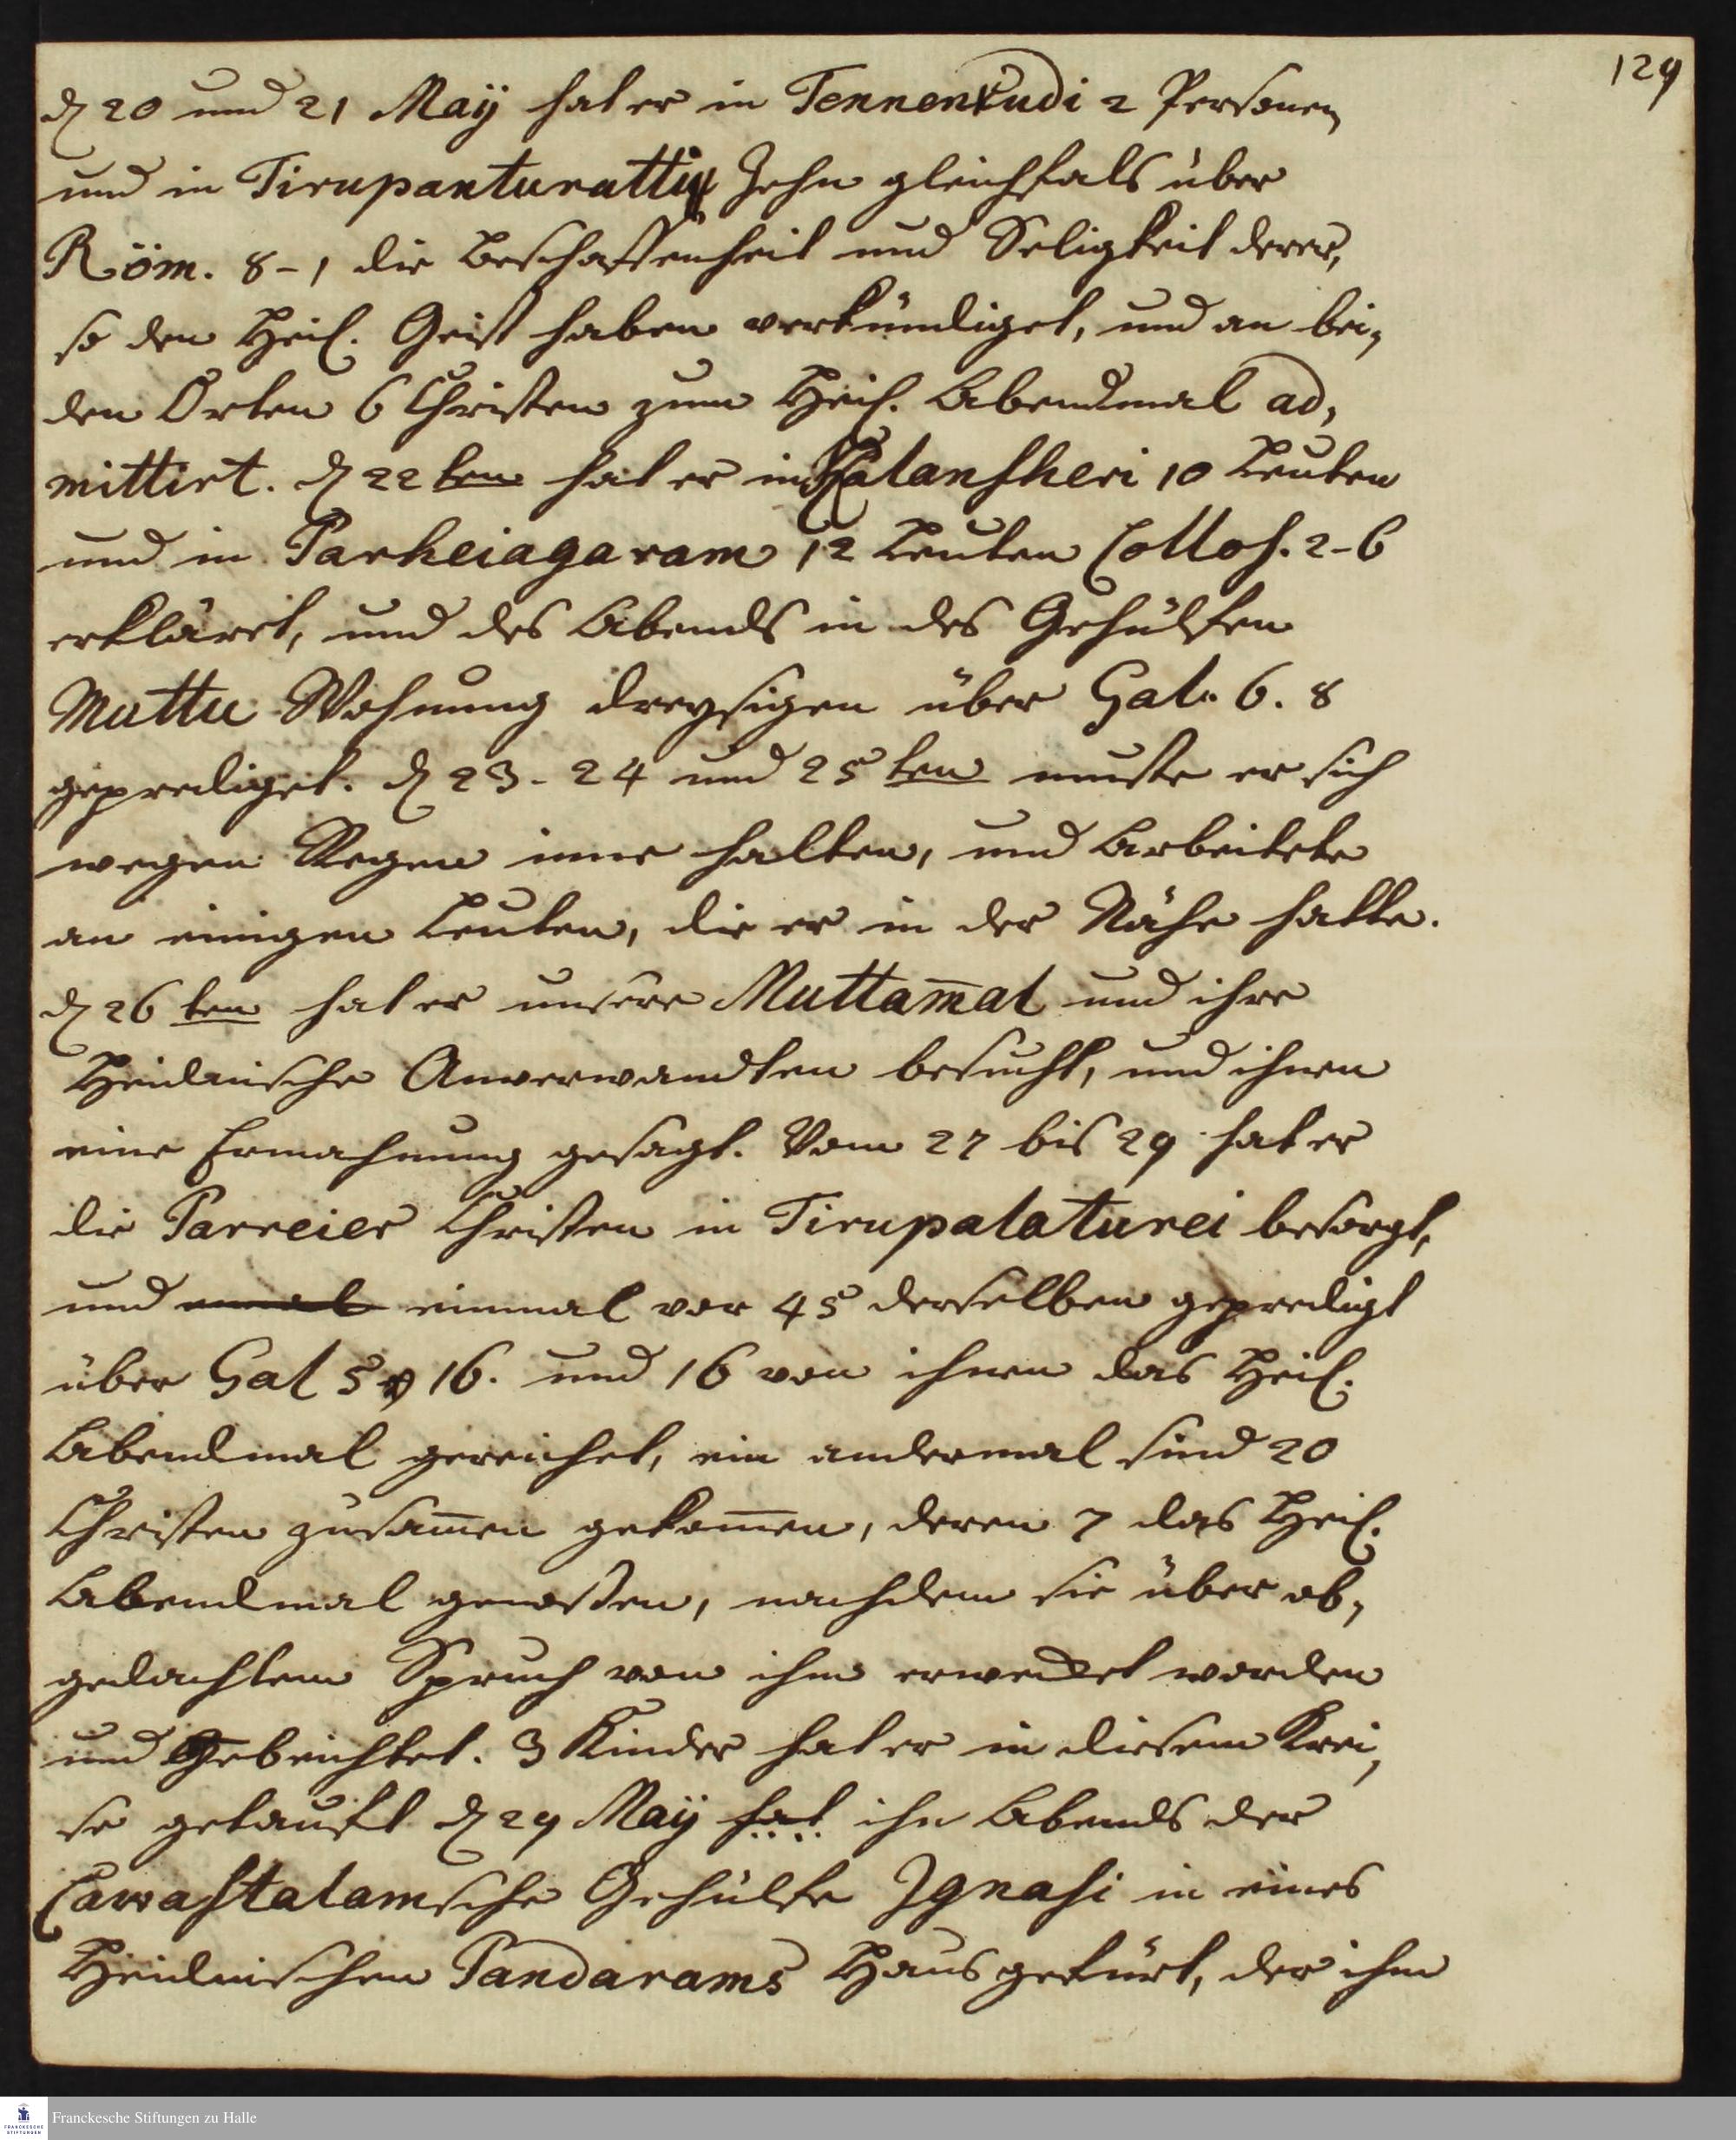 129
d 20 und 21 Maÿ hat er in Tennenkudi 2 Personen
und in Tirupanturatti Zehn gleichfals über
Röm. 8-1 die Beschaffenheit und Seligkeit derer,
so den Heil. Geist haben verkündiget, und an bei,
den Orten 6 Christen zum Heil. Abendmal ad,
mittirt. d 22ten hat er in Kalansheri 10 Leuten
und in Parheiagaram 12 Leuten Collos. 2-6
erkläret, und des Abends in des Gehülfen
Muttu Wohnung dreysigen über Gal. 6. 8
geprediget. d 23-24 und 25ten muste er sich
wegen Regen inne halten, und arbeitete
an einigen Leuten, die er in der Nähe hatte.
d 26ten hat er unsere Muttam̅al und ihre
Heidnische Anverwandten besucht, und ihnen
eine Ermahnung gesagt. Vom 27 bis 29 hat er
die Parreier Christen in Tirupalaturei besorgt,
und einmal vor 45 derselben gepredigt
über Gal 5 v 16. und 16 von ihnen das Heil.
Abendmal gereichet, ein andermal sind 20
Christen zusam̅en gekom̅en, deren 7 das Heil.
Abendmal genossen, nachdem sie über ob,
gedachtem Spruch von ihm erwecket worden
und Gebeichtet. 3 Kinder hat er in diesem Krei,
se getauft d 29 Maÿ hat ihn Abends der
Cawastalamsche Gehülfe Ignasi in eines
Heidnischen Pandarams Haus gefürt, der ihm
Franckesche Stiftungen zu Halle